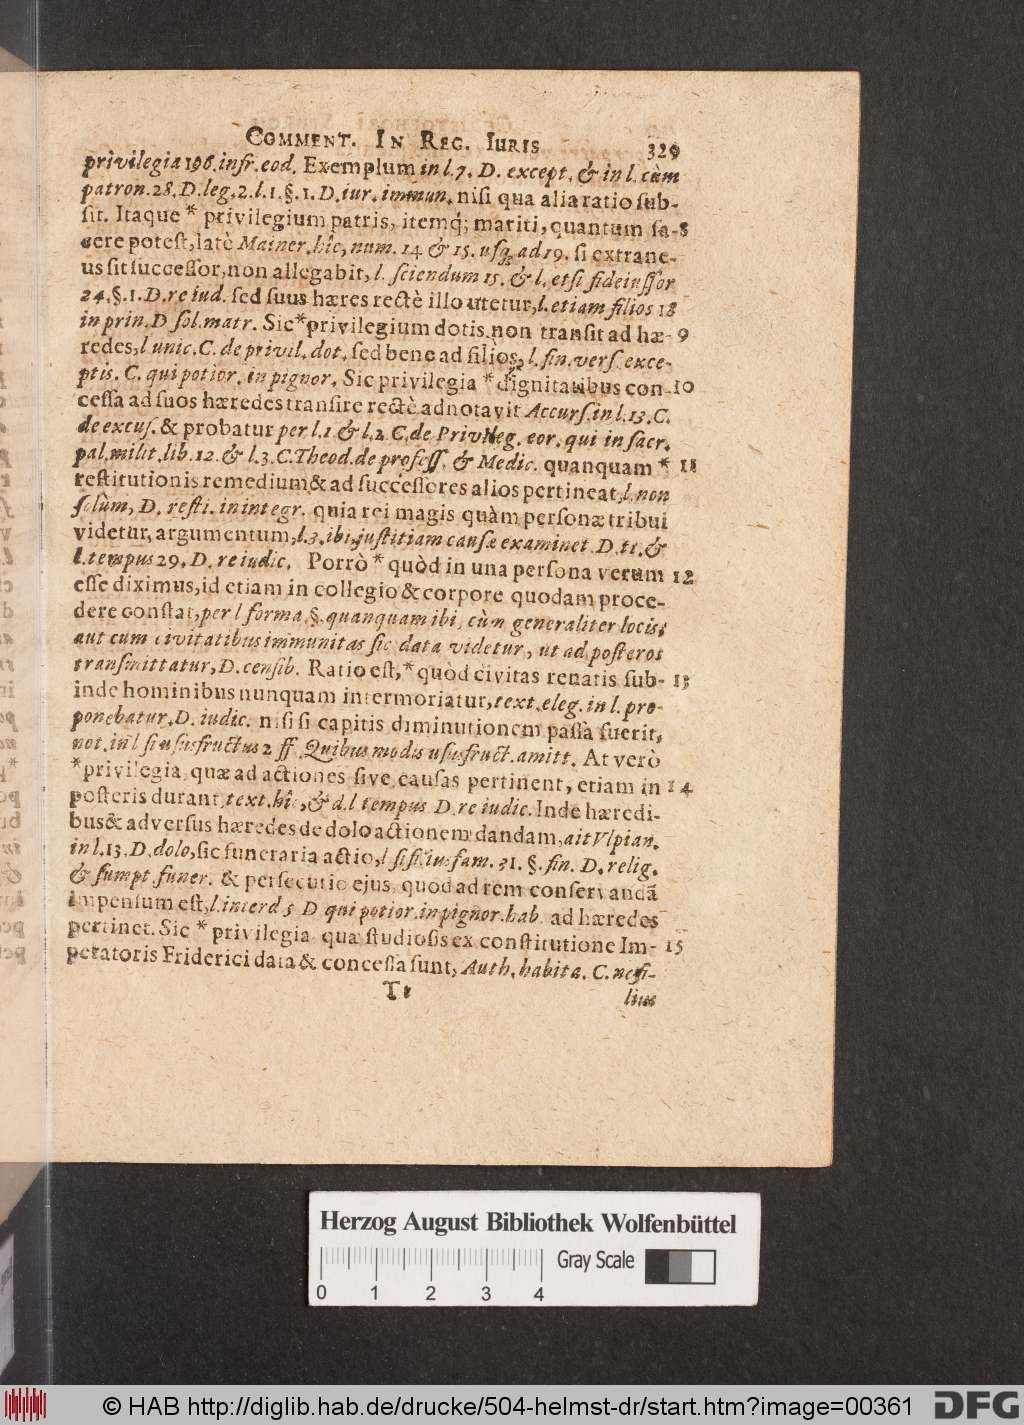 COMMENT. IN REG. IURIS 329
privilegia 196. infr. eod. Exemplum in l. 7. D. except. & in l. cùm
patron. 28. D. leg. 2. l. 1. §. 1. D. iur. immun. nisi qua alia ratio sub-
sit. Itaque * privilegium patris, itemq́; mariti, quantum fa- 8
cere potest, latè Mainer. hîc, num. 14 & 15. usq; ad 19. si extrane-
us sit successor, non allegabit, l. sciendum 15. & l. etsi fideiussor
24. §. 1. D. re iud. sed suus hæres rectè illo utetur, l. etiam filios 18
in prin. D sol. matr. Sic * privilegium dotis non transit ad hæ- 9
redes, l unic. C. de privil. dot. sed bene ad filios, l. fin. vers. exce-
ptis. C. qui potior. in pignor. Sic privilegia * dignitatibus con- 10
cessa ad suos hæredes transire rectè adnotavit Accurs. in l. 13. C.
de excus. & probatur per l. 1 & l. 2 C. de Privileg. eor. qui in sacr.
pal. milit. lib. 12. & l. 3. C. Theod. de profess. & Medic. quanquam * 11
restitutionis remedium & ad successores alios pertineat, l. non
solùm, D. resti. in integr. quia rei magis quàm personæ tribui
videtur, argumentum, l. 3. ibi, justitiam causæ examinet. D. tt. &
l. tempus 29. D. re iudic. Porrò * quòd in una persona verum 12
esse diximus, id etiam in collegio & corpore quodam proce-
dere constat, per l forma, §. quanquam ibi, cùm generaliter locis;
aut cum civitatibus immunitas sic data videtur, ut ad posteros
transmittatur, D. censib. Ratio est, * quòd civitas renatis sub- 13
inde hominibus nunquam intermoriatur, text. eleg. in l. pro-
ponebatur. D. iudic. nisi si capitis diminutionem passà fuerit,
not. in l si ususfructus 2 ff. Quibus modis ususfruct. amitt. At verò
* privilegia, quæ ad actiones sive causas pertinent, etiam in 14
posteris durant, text. hîc, & d. l tempus D. re iudic. Inde hæredi-
bus & adversus hæredes de dolo actionem dandam, ait Vlpian.
in l. 13. D. dolo, sic funeraria actio, l si filiusfam. 31. §. fin. D. relig.
& sumpt funer. & persecutio ejus, quod ad rem conservandã
impensum est, l. interd 5 D qui potior. in pignor. hab. ad hæredes
pertinet. Sic * privilegia quæ studiosis ex constitutione Im- 15
peratoris Friderici data & concessa sunt, Auth. habita. C. ne fi-
Tt lius
Herzog August Bibliothek Wolfenbüttel
Gray Scale
0 1 2 3 4
© HAB http://diglib.hab.de/drucke/504-helmst-dr/start.htm?image=00361 DFG